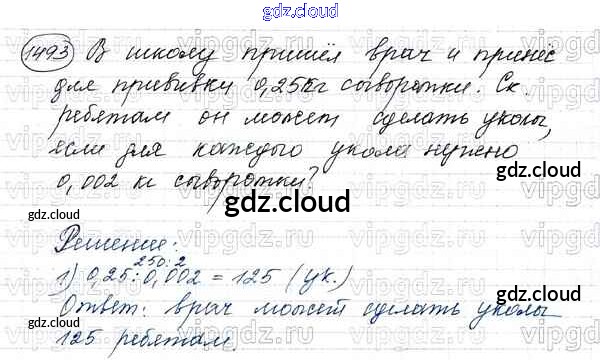 gdz.cloud
1493 В школу пришёл врач и принёс
для прививки 0,25кг сыворотки. Ск.
ребятам он может сделать уколы,
если для каждого укола нужно
0,002 кг сыворотки?
gdz.cloud
gdz.cloud
gdz.cloud
Решение:
250:2
1) 0,25:0,002 = 125 (ук.)
Ответ: врач может сделать уколы
125 ребятам.
gdz.cloud
gdz.cloud
vipgdz
vipgdz
vipgdz
vipgdz
vipgdz
vipgdz